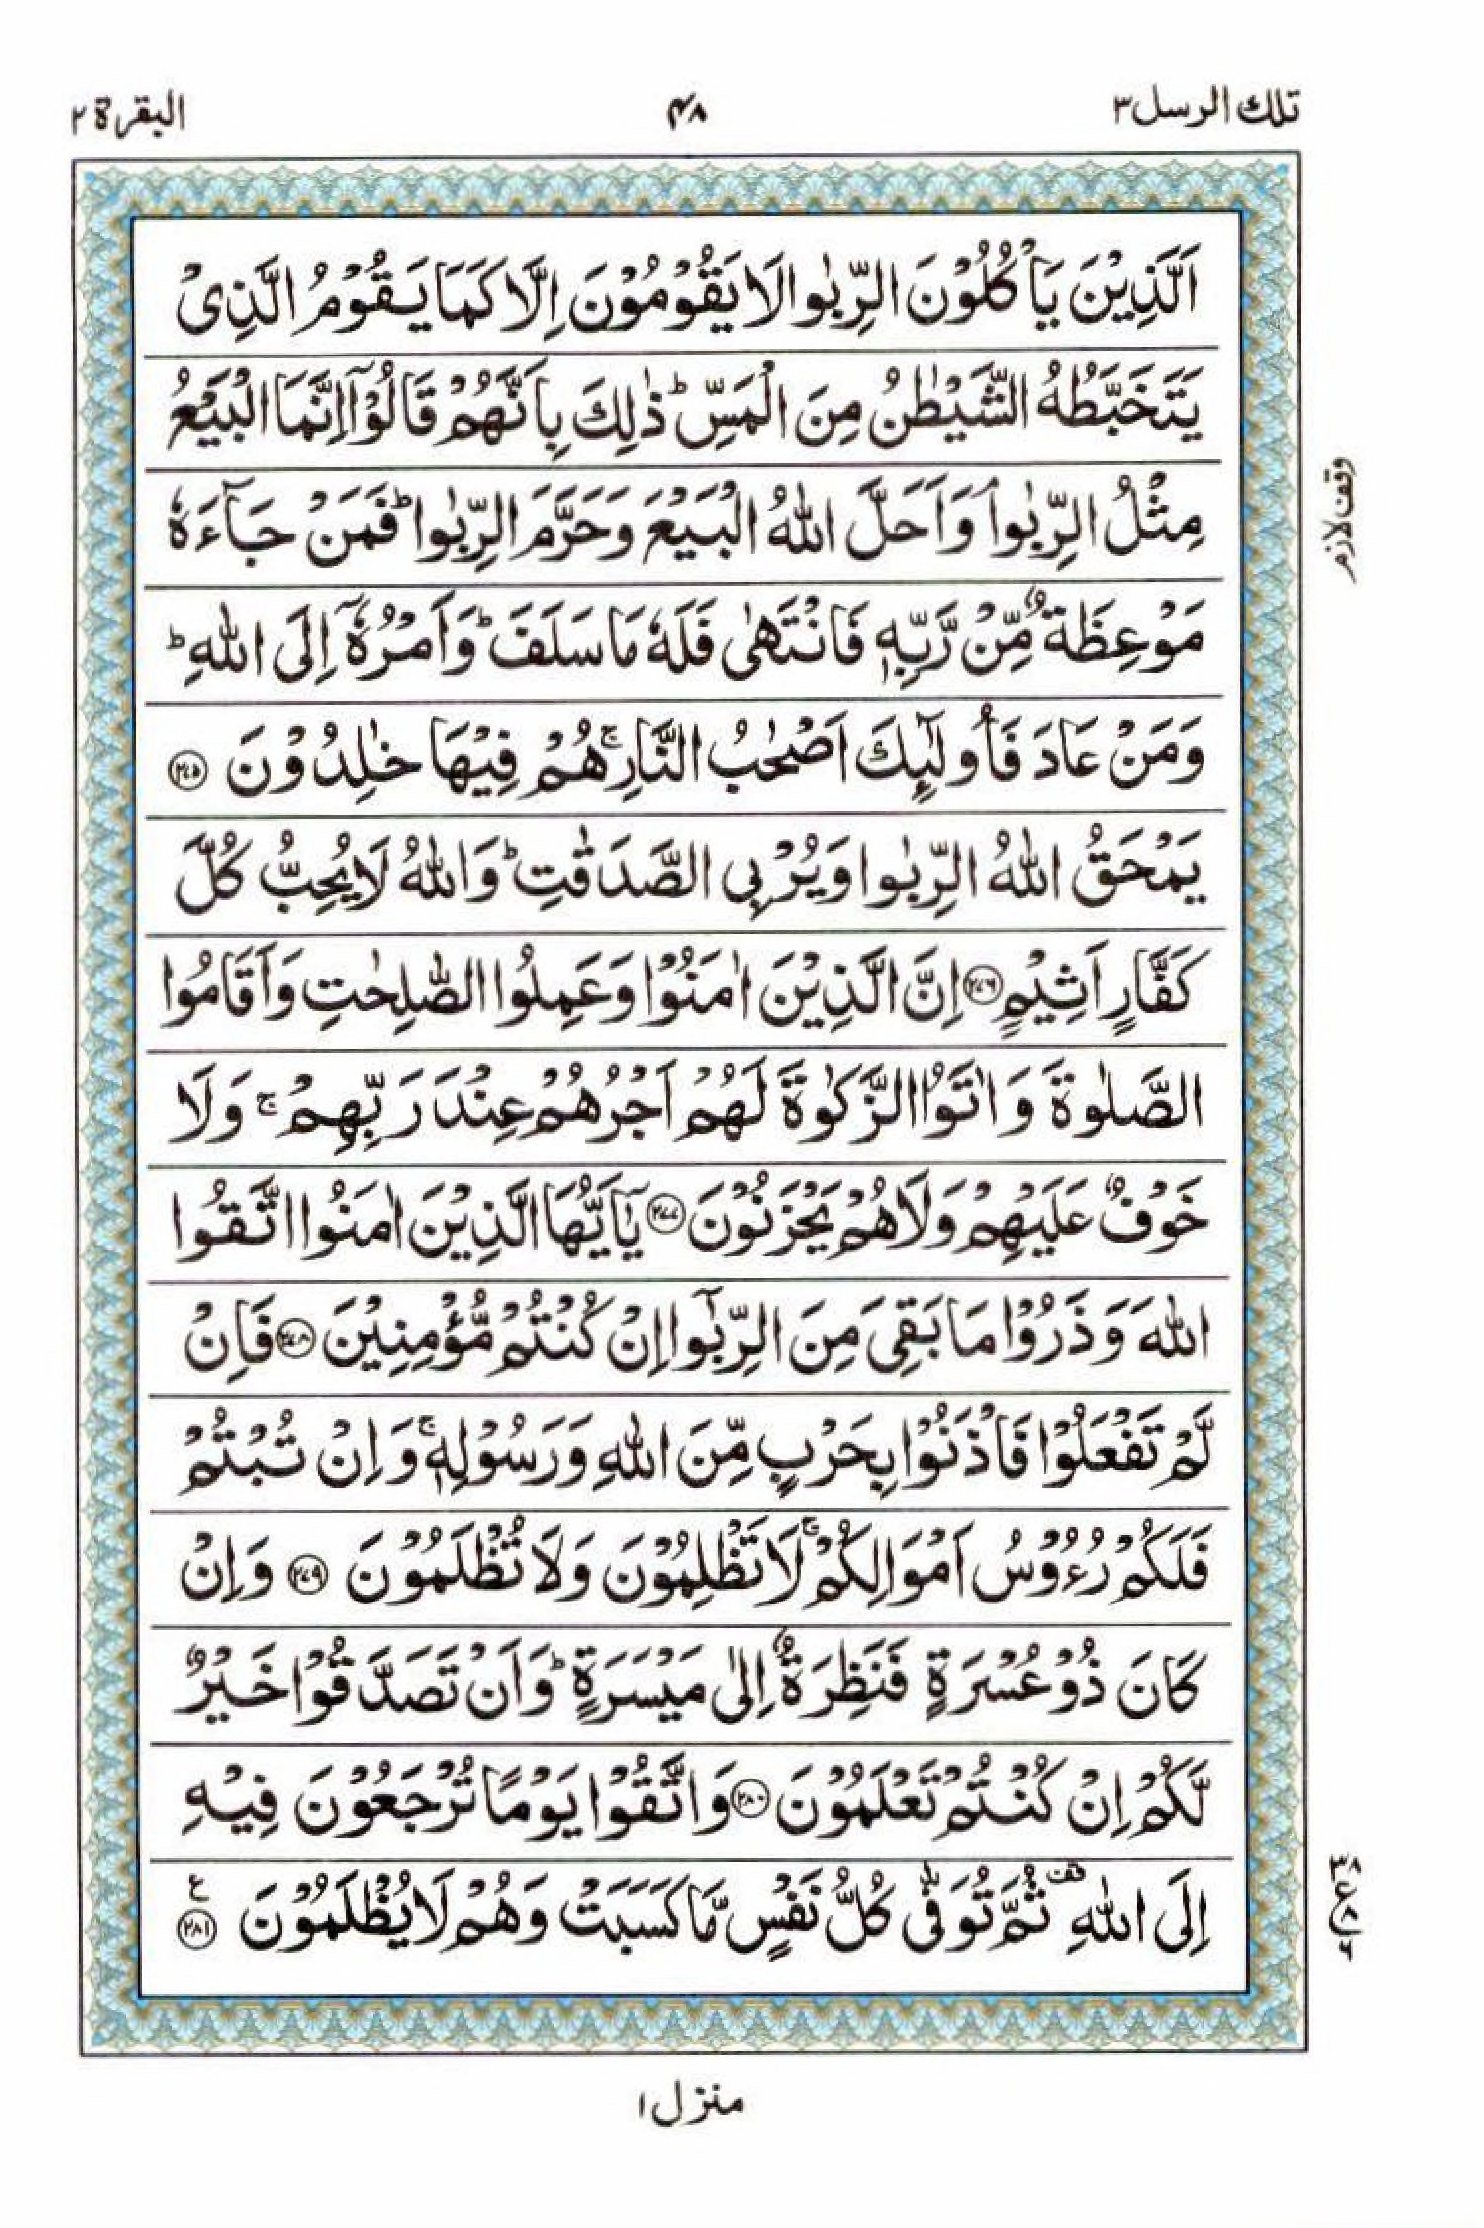 تلك الرسل ٣
٤٨
البقرة ٢
اَلَّذِيْنَ يَاْكُلُوْنَ الرِّبٰوا لَا يَقُوْمُوْنَ اِلَّا كَمَا يَقُوْمُ الَّذِىْ
يَتَخَبَّطُهُ الشَّيْطٰنُ مِنَ الْمَسِّ ؕ ذٰلِكَ بِاَنَّهُمْ قَالُوْۤا اِنَّمَا الْبَيْعُ
مِثْلُ الرِّبٰوا ۘ وَاَحَلَّ اللّٰهُ الْبَيْعَ وَحَرَّمَ الرِّبٰوا ؕ فَمَنْ جَآءَهٗ
وقف لازم
مَوْعِظَةٌ مِّنْ رَّبِّهٖ فَانْتَهٰى فَلَهٗ مَا سَلَفَ ؕ وَاَمْرُهٗۤ اِلَى اللّٰهِ ؕ
وَمَنْ عَادَ فَاُولٰٓئِكَ اَصْحٰبُ النَّارِ ۚ هُمْ فِيْهَا خٰلِدُوْنَ ﴿۲۷۵﴾
يَمْحَقُ اللّٰهُ الرِّبٰوا وَيُرْبِى الصَّدَقٰتِ ؕ وَاللّٰهُ لَا يُحِبُّ كُلَّ
كَفَّارٍ اَثِيْمٍ ﴿۲۷۶﴾ اِنَّ الَّذِيْنَ اٰمَنُوْا وَعَمِلُوا الصّٰلِحٰتِ وَاَقَامُوا
الصَّلٰوةَ وَاٰتَوُا الزَّكٰوةَ لَهُمْ اَجْرُهُمْ عِنْدَ رَبِّهِمْ ۚ وَلَا
خَوْفٌ عَلَيْهِمْ وَلَا هُمْ يَحْزَنُوْنَ ﴿۲۷۷﴾ يٰۤاَيُّهَا الَّذِيْنَ اٰمَنُوا اتَّقُوا
اللّٰهَ وَذَرُوْا مَا بَقِىَ مِنَ الرِّبٰۤوا اِنْ كُنْتُمْ مُّؤْمِنِيْنَ ﴿۲۷۸﴾ فَاِنْ
لَّمْ تَفْعَلُوْا فَاْذَنُوْا بِحَرْبٍ مِّنَ اللّٰهِ وَرَسُوْلِهٖ ۚ وَاِنْ تُبْتُمْ
فَلَكُمْ رُءُوْسُ اَمْوَالِكُمْ ۚ لَا تَظْلِمُوْنَ وَلَا تُظْلَمُوْنَ ﴿۲۷۹﴾ وَاِنْ
كَانَ ذُوْ عُسْرَةٍ فَنَظِرَةٌ اِلٰى مَيْسَرَةٍ ؕ وَاَنْ تَصَدَّقُوْا خَيْرٌ
لَّكُمْ اِنْ كُنْتُمْ تَعْلَمُوْنَ ﴿۲۸۰﴾ وَاتَّقُوْا يَوْمًا تُرْجَعُوْنَ فِيْهِ
اِلَى اللّٰهِ ۗ ثُمَّ تُوَفّٰى كُلُّ نَفْسٍ مَّا كَسَبَتْ وَهُمْ لَا يُظْلَمُوْنَ ﴿۲۸۱﴾ ع
٣٨ ع ٨ ٦
منزل ١